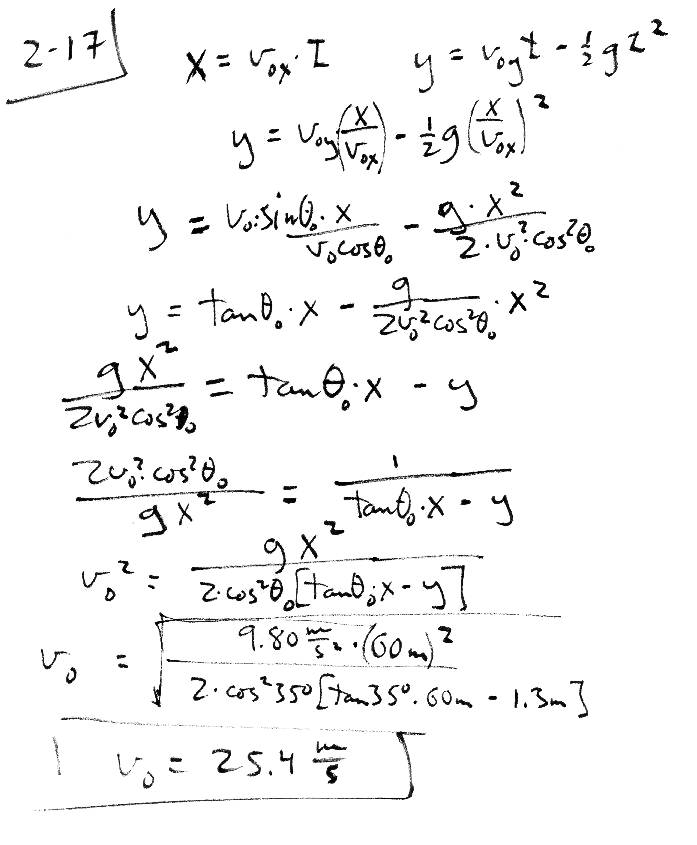 2-17 x = v₀ₓ·t y = v₀yt - ½gt²
y = v₀y(x/v₀ₓ) - ½g(x/v₀ₓ)²
y = v₀·sinθ₀·x/v₀cosθ₀ - g·x²/2·v₀²·cos²θ₀
y = tanθ₀·x - g/2v₀²cos²θ₀·x²
gx²/2v₀²cos²θ₀ = tanθ₀·x - y
2v₀²·cos²θ₀/gx² = 1/tanθ₀·x - y
v₀² = gx²/2·cos²θ₀[tanθ₀·x - y]
v₀ = √(9.80 m/s²·(60m)²/2·cos²35°[tan35°·60m - 1.3m])
v₀ = 25.4 m/s